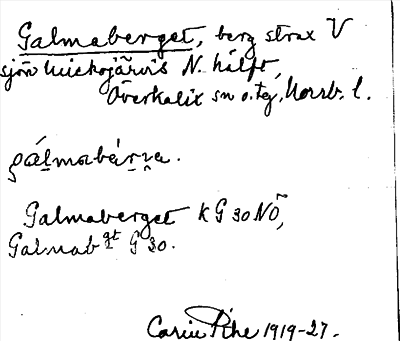 Galmaberget, berg strax V
sjön Miekojärvis N. hälft,
Överkalix sn o. tg, Norrb. l.
gálmabár̯ɟa.
Galmaberget K G 30 NÖ,
Galmabgt G 30.
Carin Pihl 1919-27.